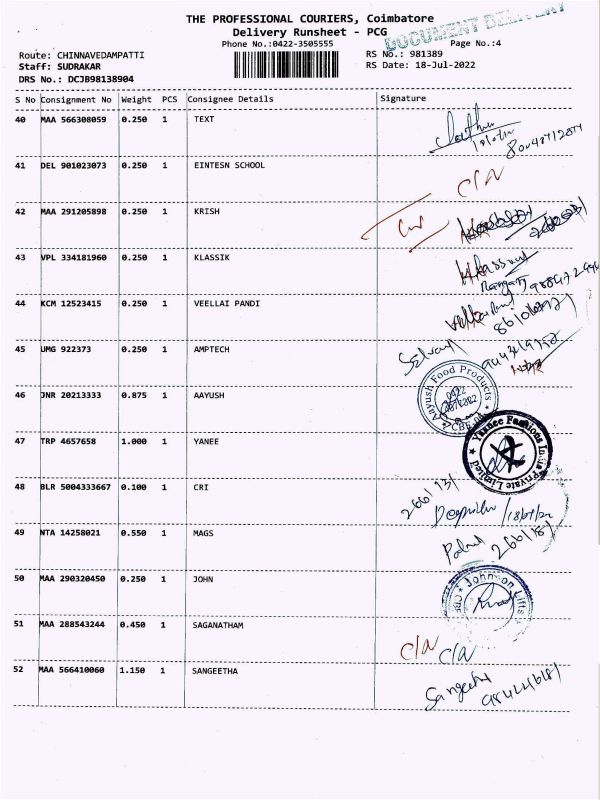 THE PROFESSIONAL COURIERS, Coimbatore
DOCUMENT DELIVERY
Delivery Runsheet - PCG
Phone No.:0422-3505555
Page No.:4
Route: CHINNAVEDAMPATTI
RS No.: 981389
Staff: SUDRAKAR
RS Date: 18-Jul-2022
DRS No.: DCJB98138904
S No Consignment No Weight PCS Consignee Details Signature
40 MAA 566308059 0.250 1 TEXT
41 DEL 901023073 0.250 1 EINTESN SCHOOL
C/N
42 MAA 291205898 0.250 1 KRISH
43 VPL 334181960 0.250 1 KLASSIK
44 KCM 12523415 0.250 1 VEELLAI PANDI
45 UMG 922373 0.250 1 AMPTECH
Selvam
46 JNR 20213333 0.875 1 AAYUSH
Aayush Food Products
CBE
47 TRP 4657658 1.000 1 YANEE
Yanee Fashions India Private Limited
48 BLR 5004333667 0.100 1 CRI
49 NTA 14258021 0.550 1 MAGS
50 MAA 290320450 0.250 1 JOHN
Johnson Lifts
51 MAA 288543244 0.450 1 SAGANATHAM
C/N C/N
52 MAA 566410060 1.150 1 SANGEETHA
Sangeetha